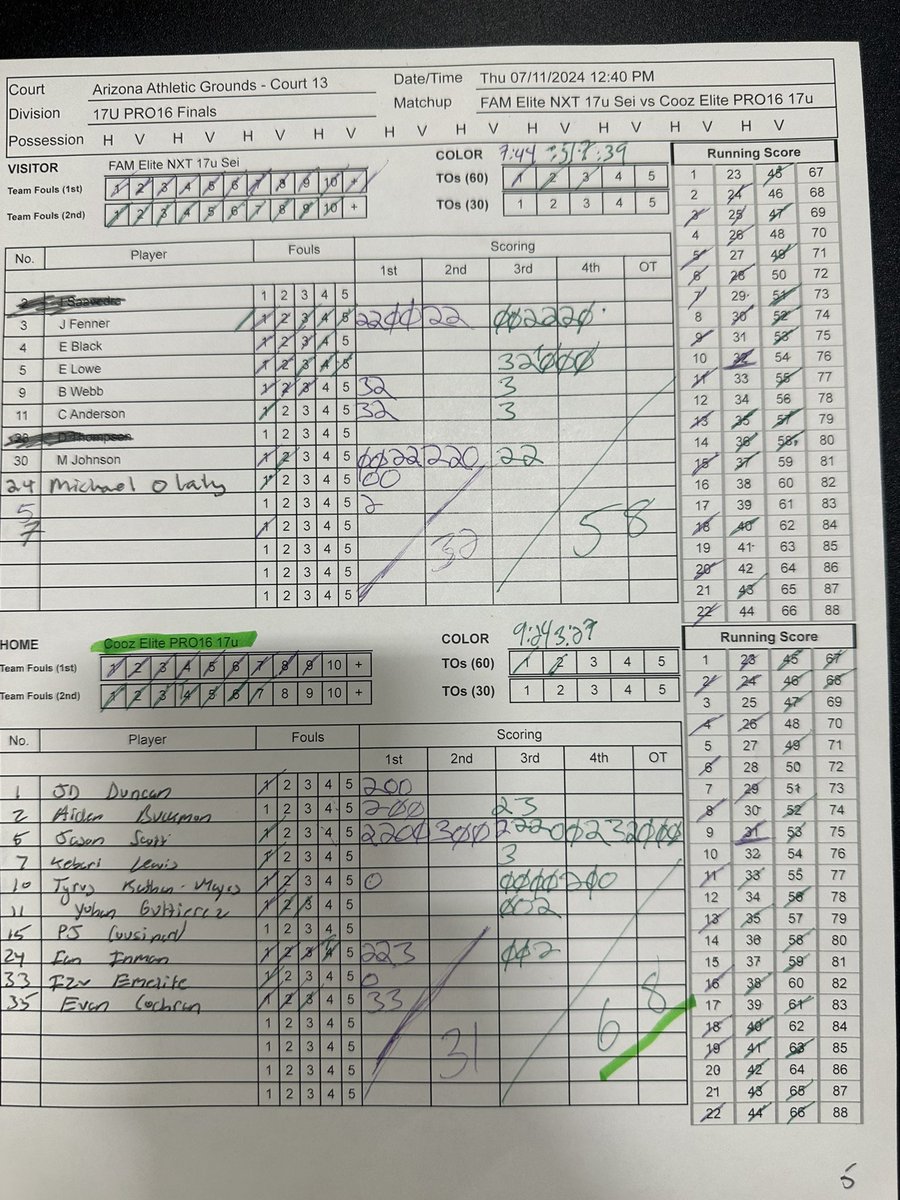 Court Arizona Athletic Grounds - Court 13 Date/Time Thu 07/11/2024 12:40 PM
Division 17U PRO16 Finals Matchup FAM Elite NXT 17u Sei vs Cooz Elite PRO16 17u
Possession H V H V H V H V H V H V H V H V H V H V
VISITOR FAM Elite NXT 17u Sei COLOR 7:44 :51 7:39 Running Score
Team Fouls (1st) 1 2 3 4 5 6 7 8 9 10 + TOs (60) 1 2 3 4 5
Team Fouls (2nd) 1 2 3 4 5 6 7 8 9 10 + TOs (30) 1 2 3 4 5
No. Player Fouls Scoring
1st 2nd 3rd 4th OT
2 J Saavedra 1 2 3 4 5
3 J Fenner 1 2 3 4 5
4 E Black 1 2 3 4 5
5 E Lowe 1 2 3 4 5
9 B Webb 1 2 3 4 5 32 3
11 C Anderson 1 2 3 4 5 32 3
D Thompson 1 2 3 4 5
30 M Johnson 1 2 3 4 5
24 Michael 1 2 3 4 5 00
5 1 2 3 4 5 2
7 1 2 3 4 5
1 2 3 4 5 32 58
1 2 3 4 5
1 2 3 4 5
1 23 45 67
2 24 46 68
3 25 47 69
4 26 48 70
5 27 49 71
6 28 50 72
7 29 51 73
8 30 52 74
9 31 53 75
10 32 54 76
11 33 55 77
12 34 56 78
13 35 57 79
14 36 58 80
15 37 59 81
16 38 60 82
17 39 61 83
18 40 62 84
19 41 63 85
20 42 64 86
21 43 65 87
22 44 66 88
HOME Cooz Elite PRO16 17u COLOR 9:24 3:27 Running Score
Team Fouls (1st) 1 2 3 4 5 6 7 8 9 10 + TOs (60) 1 2 3 4 5
Team Fouls (2nd) 1 2 3 4 5 6 7 8 9 10 + TOs (30) 1 2 3 4 5
No. Player Fouls Scoring
1st 2nd 3rd 4th OT
1 JD Duncan 1 2 3 4 5 200
2 Aiden 1 2 3 4 5 200 23
Jason Scott 1 2 3 4 5
7 Lewis 1 2 3 4 5 3
10 Tyrus 1 2 3 4 5 0
11 1 2 3 4 5 002
15 PJ 1 2 3 4 5
24 Ian Inman 1 2 3 4 5 223
33 1 2 3 4 5 0
35 Evan Cochran 1 2 3 4 5 33
1 2 3 4 5
1 2 3 4 5 31 68
1 2 3 4 5
1 2 3 4 5
1 23 45 67
2 24 46 68
3 25 47 69
4 26 48 70
5 27 49 71
6 28 50 72
7 29 51 73
8 30 52 74
9 31 53 75
10 32 54 76
11 33 55 77
12 34 56 78
13 35 57 79
14 36 58 80
15 37 59 81
16 38 60 82
17 39 61 83
18 40 62 84
19 41 63 85
20 42 64 86
21 43 65 87
22 44 66 88
5